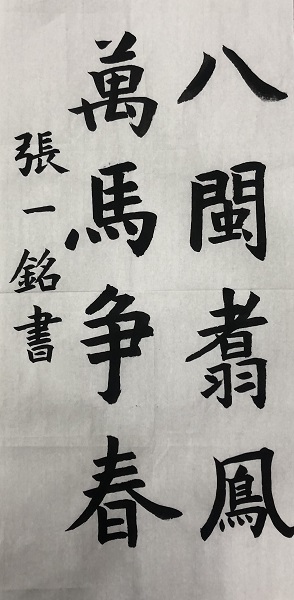 八閩翥鳳
萬馬争春
張一銘書